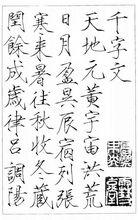 千字文
天地元黃宇宙洪荒
日月盈昃辰宿列張
寒来暑往秋收冬藏
閏餘成歲律呂調陽